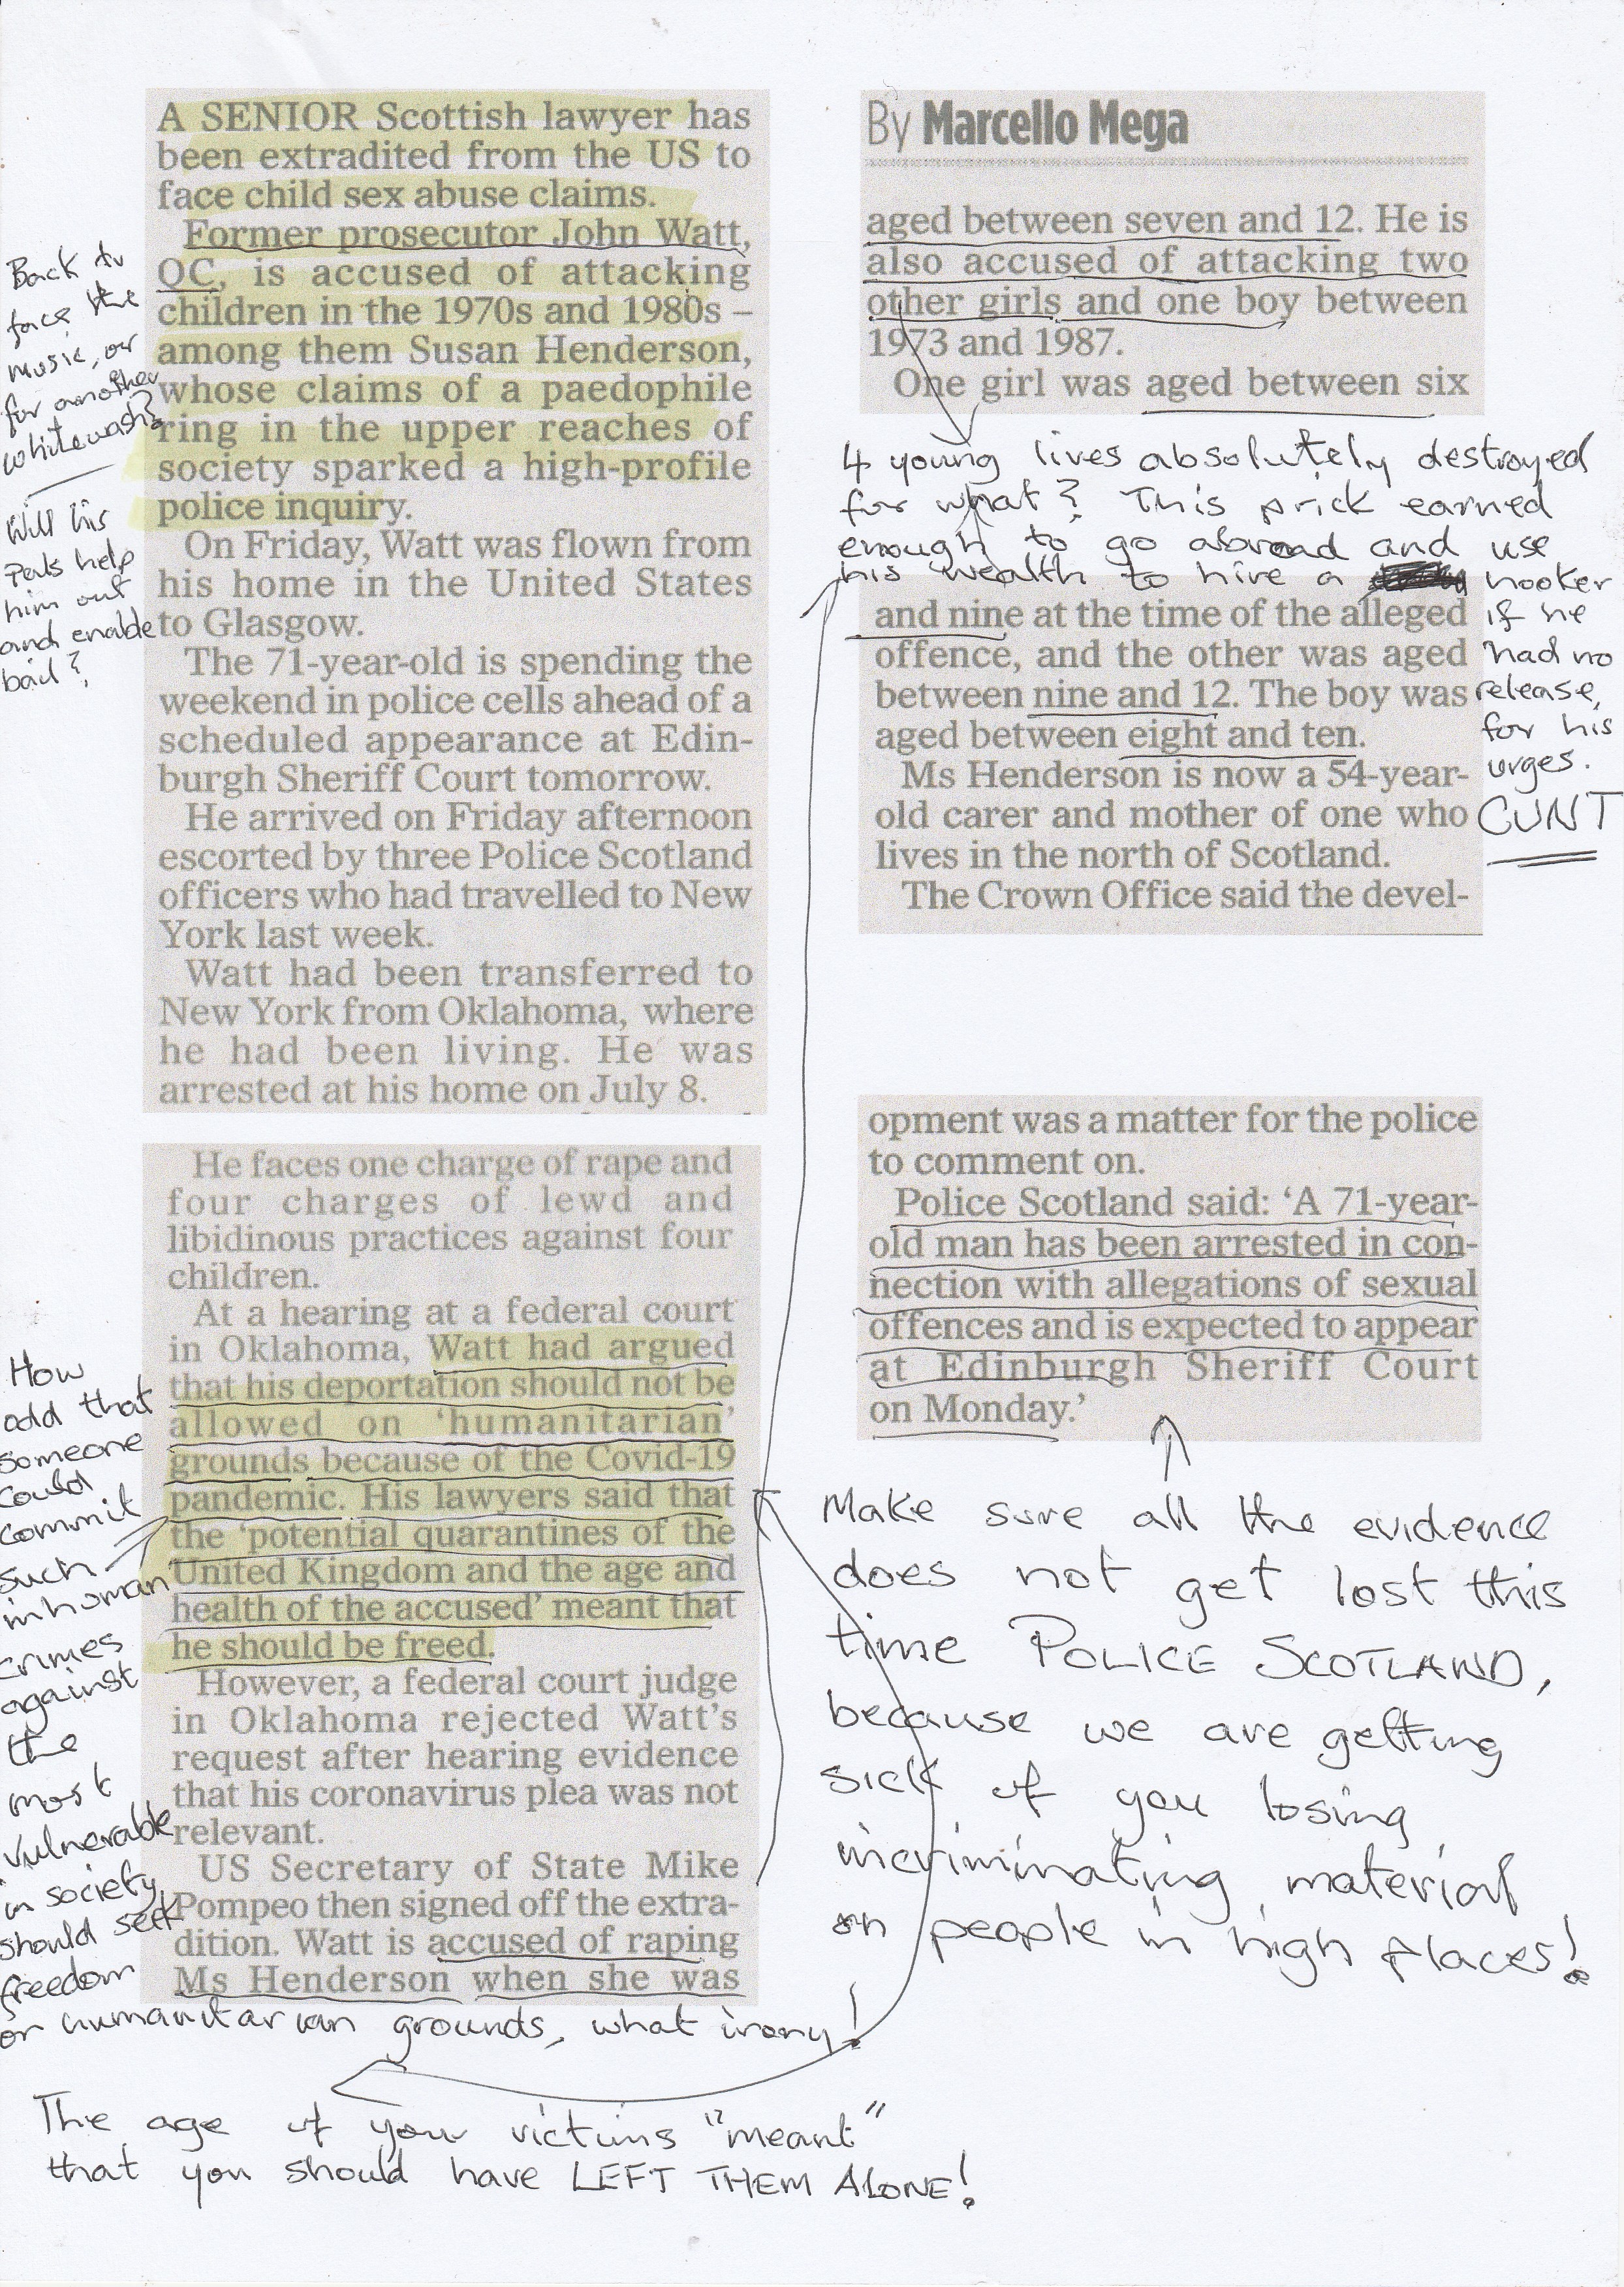 A SENIOR Scottish lawyer has
been extradited from the US to
face child sex abuse claims.
Former prosecutor John Watt,
QC, is accused of attacking
children in the 1970s and 1980s –
among them Susan Henderson,
whose claims of a paedophile
ring in the upper reaches of
society sparked a high-profile
police inquiry.
On Friday, Watt was flown from
his home in the United States
to Glasgow.
The 71-year-old is spending the
weekend in police cells ahead of a
scheduled appearance at Edin-
burgh Sheriff Court tomorrow.
He arrived on Friday afternoon
escorted by three Police Scotland
officers who had travelled to New
York last week.
Watt had been transferred to
New York from Oklahoma, where
he had been living. He was
arrested at his home on July 8.
Back to
face the
music, or
for another
whitewash?
Will his
pals help
him out
and enable
bail?
He faces one charge of rape and
four charges of lewd and
libidinous practices against four
children.
At a hearing at a federal court
in Oklahoma, Watt had argued
that his deportation should not be
allowed on 'humanitarian'
grounds because of the Covid-19
pandemic. His lawyers said that
the 'potential quarantines of the
United Kingdom and the age and
health of the accused' meant that
he should be freed.
However, a federal court judge
in Oklahoma rejected Watt's
request after hearing evidence
that his coronavirus plea was not
relevant.
US Secretary of State Mike
Pompeo then signed off the extra-
dition. Watt is accused of raping
Ms Henderson when she was
How
odd that
someone
could
commit
such
inhuman
crimes
against
the
most
vulnerable
in society
should seek
freedom
on humanitarian grounds, what irony!
The age of your victims "meant"
that you should have LEFT THEM ALONE!
By Marcello Mega
aged between seven and 12. He is
also accused of attacking two
other girls and one boy between
1973 and 1987.
One girl was aged between six
4 young lives absolutely destroyed
for what? This prick earned
enough to go abroad and use
his wealth to hire a hooker
if he
had no
release,
for his
urges.
CUNT
and nine at the time of the alleged
offence, and the other was aged
between nine and 12. The boy was
aged between eight and ten.
Ms Henderson is now a 54-year-
old carer and mother of one who
lives in the north of Scotland.
The Crown Office said the devel-
opment was a matter for the police
to comment on.
Police Scotland said: 'A 71-year-
old man has been arrested in con-
nection with allegations of sexual
offences and is expected to appear
at Edinburgh Sheriff Court
on Monday.'
Make sure all the evidence
does not get lost this
time POLICE SCOTLAND,
because we are getting
sick of you losing
incriminating material
on people in high places!